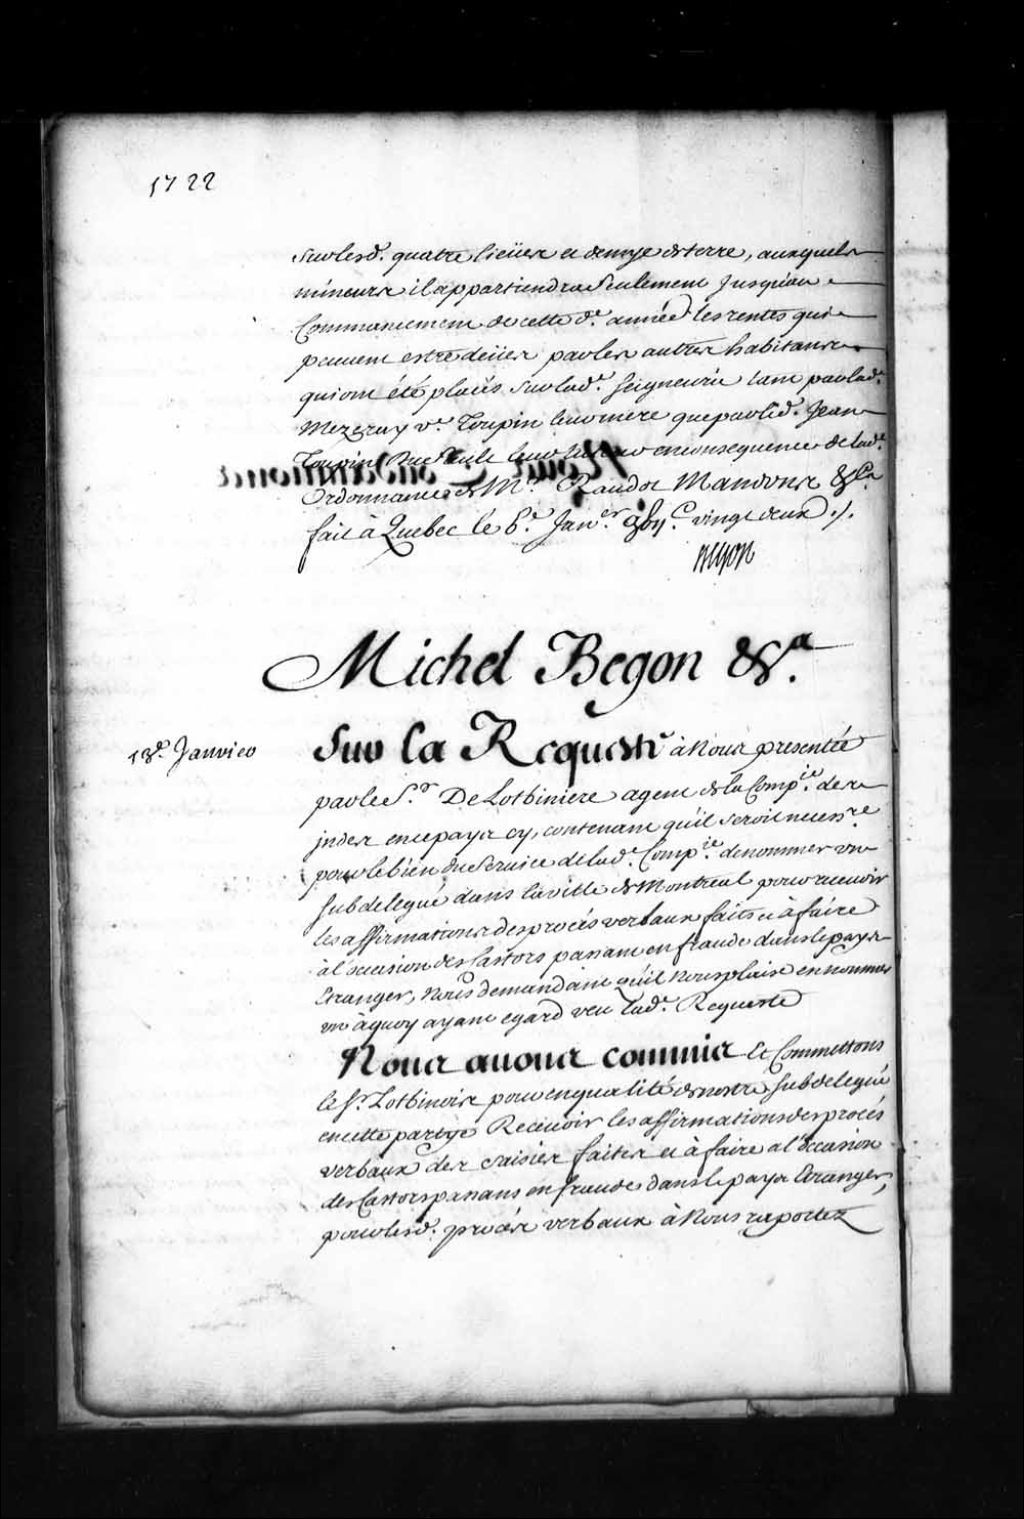 1722
Sur lesd. quatre lieües et demye de terre, auxquels
mineurs il appartiendra Seulement Jusqu'au
Commancement de cette d.e année les rentes qui
peuvent estre deües par les autres habitans
qui ont été placés Sur lad.e Seigneurie tant par lad.e
Mezeray v.e Toupin leur mere que par led. Jean
Toupin en consequence de lad.e
Ordonnance de M.r Raudot Mandons &c.a
fait à Quebec le 6.e Jan.er vingt deux ./.
Begon
Michel Begon &c.a
13.e Janvier
Sur la Requeste à Nous presentée
par le S.r De Lotbiniere agent de la Comp.ie des
jndes en ce pays cy, contenant qu'il seroit necess.re
pour le bien du Service de lad.e Comp.ie de nommer un
Subdelegué dans la ville de Montreal pour recevoir
les affirmations des procés verbaux faits et à faire
à l'occasion des Castors passant en fraude dans le pays
Etranger, Nous demandant qu'il Nous plaise en nommer
un à quoy ayant egard veu lad.e Requeste
Nous avons commis Et Commettons
le S.r Lotbinois pour en qualité de nostre Subdelegué
en cette partye Recevoir les affirmations des procés
verbaux des saisies faites et à faire a l'occasion
des Castors passans en fraude dans le pays Etranger,
pour lesd. procés verbaux à Nous raportez